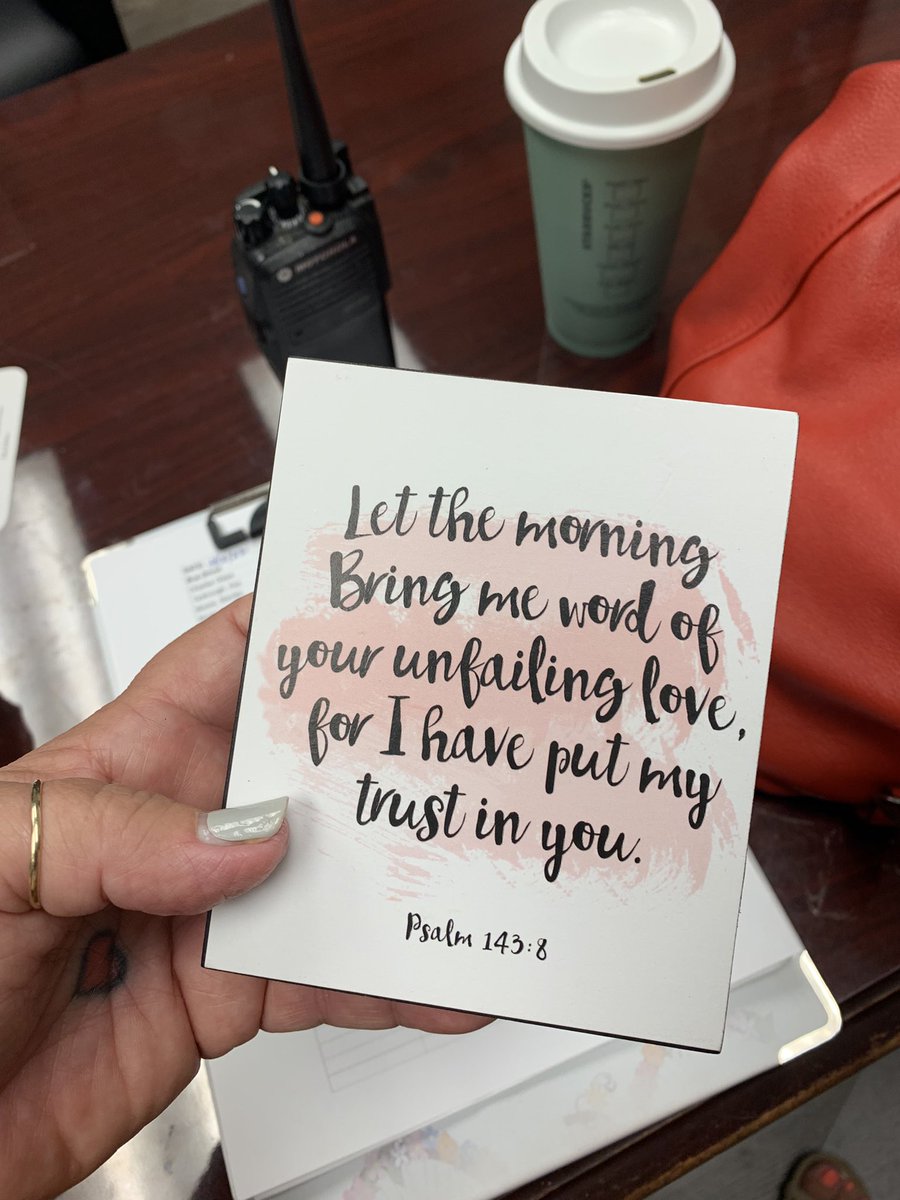 STARBUCKS
MOTOROLA
Let the morning
Bring me word of
your unfailing love,
for I have put my
trust in you.
Psalm 143:8